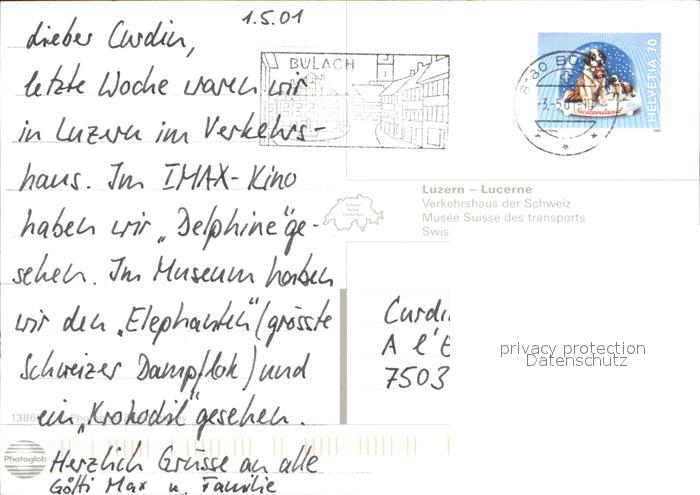 1.5.01
Lieber Curdin,
letzte Woche waren wir
in Luzern im Verkehrs-
haus. Im IMAX-Kino
haben wir „Delphine" ge-
sehen. Im Museum haben
wir den „Elephanten" (grösste
Schweizer Dampflok) und
ein „Krokodil" gesehen.
Herzlich Grüsse an alle
Götti Max u. Familie
BÜLACH
8180 BÜ
-3.-5.01
Switzerland
HELVETIA 70
Luzern – Lucerne
Verkehrshaus der Schweiz
Musée Suisse des transports
Swis
Curdi
A l'E
7503
privacy protection
Datenschutz
1386
Photoglob